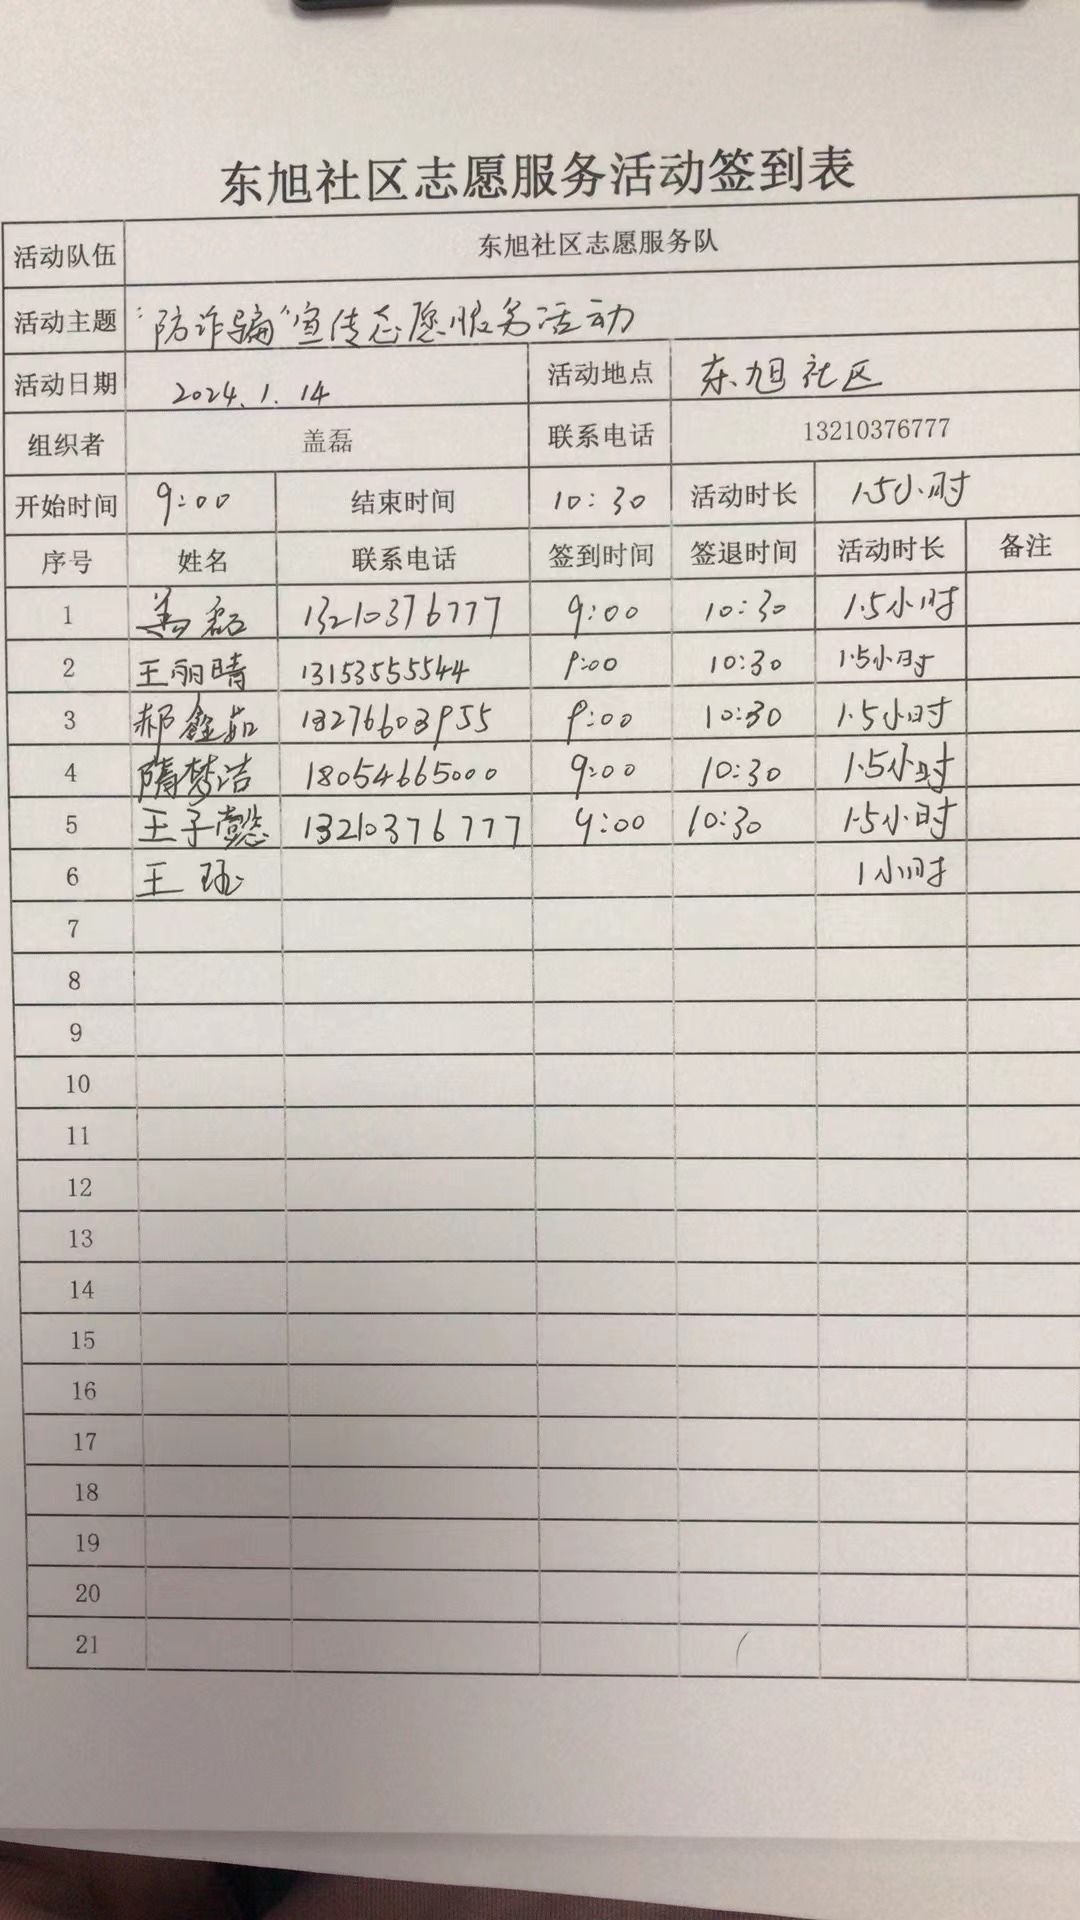 东旭社区志愿服务活动签到表
活动队伍 东旭社区志愿服务队
活动主题 “防诈骗”宣传志愿服务活动
活动日期 2024.1.14 活动地点 东旭社区
组织者 盖磊 联系电话 13210376777
开始时间 9:00 结束时间 10:30 活动时长 1.5小时
序号 姓名 联系电话 签到时间 签退时间 活动时长 备注
1 盖磊 13210376777 9:00 10:30 1.5小时
2 王丽晴 13153555544 9:00 10:30 1.5小时
3 郝鑫茹 13276603955 9:00 10:30 1.5小时
4 隋梦洁 18054665000 9:00 10:30 1.5小时
5 王子懿 13210376777 9:00 10:30 1.5小时
6 王 1小时
7
8
9
10
11
12
13
14
15
16
17
18
19
20
21